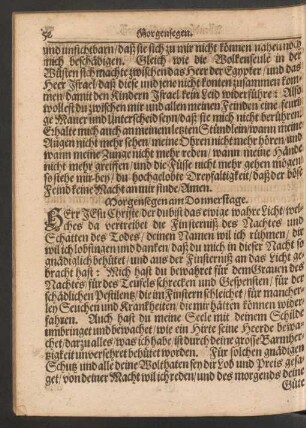 56 Morgensegen.
und unsichtbarn/ daß sie sich zu mir nicht können nahen noch
mich beschädigen. Gleich wie die Wolkenseule in der
Wüsten sich machte zwischen das Heer der Egypter/ und das
Heer Israel/ daß diese und jene nicht konten zusammen kom-
men/ damit den Kindern Israel kein Leid widerführe: Also
wollest du zwischen mir und allen meinen Feinden eine feuri-
ge Mauer und Unterscheid seyn/ daß sie mich nicht berühren.
Erhalte mich auch an meinem letzten Stündlein/ wann meine
Augen nicht mehr sehen/ meine Ohren nicht mehr hören/ und
wann meine Zunge nicht mehr reden/ wann meine Hände
nicht mehr greiffen/ und die Füsse nicht mehr gehen mögen/
so stehe mir bey/ du hochgelobte Dreyfaltigkeit/ daß der böse
Feind keine Macht an mir finde/ Amen.
Morgensegen am Donnerstage.
HErr JEsu Christe/ der du bist das ewige wahre Licht/ wel-
ches da vertreibet die Finsterniß des Nachtes und
Schatten des Todes/ deinen Namen wil ich rühmen/ dir
wil ich lobsingen und danken/ daß du mich in dieser Nacht so
gnädiglich behütet/ und aus der Finsterniß an das Licht ge-
bracht hast: Mich hast du bewahret für dem Grauen des
Nachtes/ für des Teufels schrecken und Gespensten/ für der
schädlichen Pestilentz/ die im Finstern schleicht/ für mancher-
ley Seuchen und Krankheiten/ die mir hätten können wider-
fahren. Auch hast du meine Seele mit deinem Schilde
umbringet und bewachet/ wie ein Hirte seine Heerde bewa-
chet/ darzu alles/ was ich habe ist durch deine grosse Barmher-
tzigkeit unversehret behütet worden. Für solchen gnädigen
Schutz und alle deine Wolthaten sey dir Lob und Preis gesa-
get/ von deiner Macht wil ich reden/ und des morgends deine
Güte